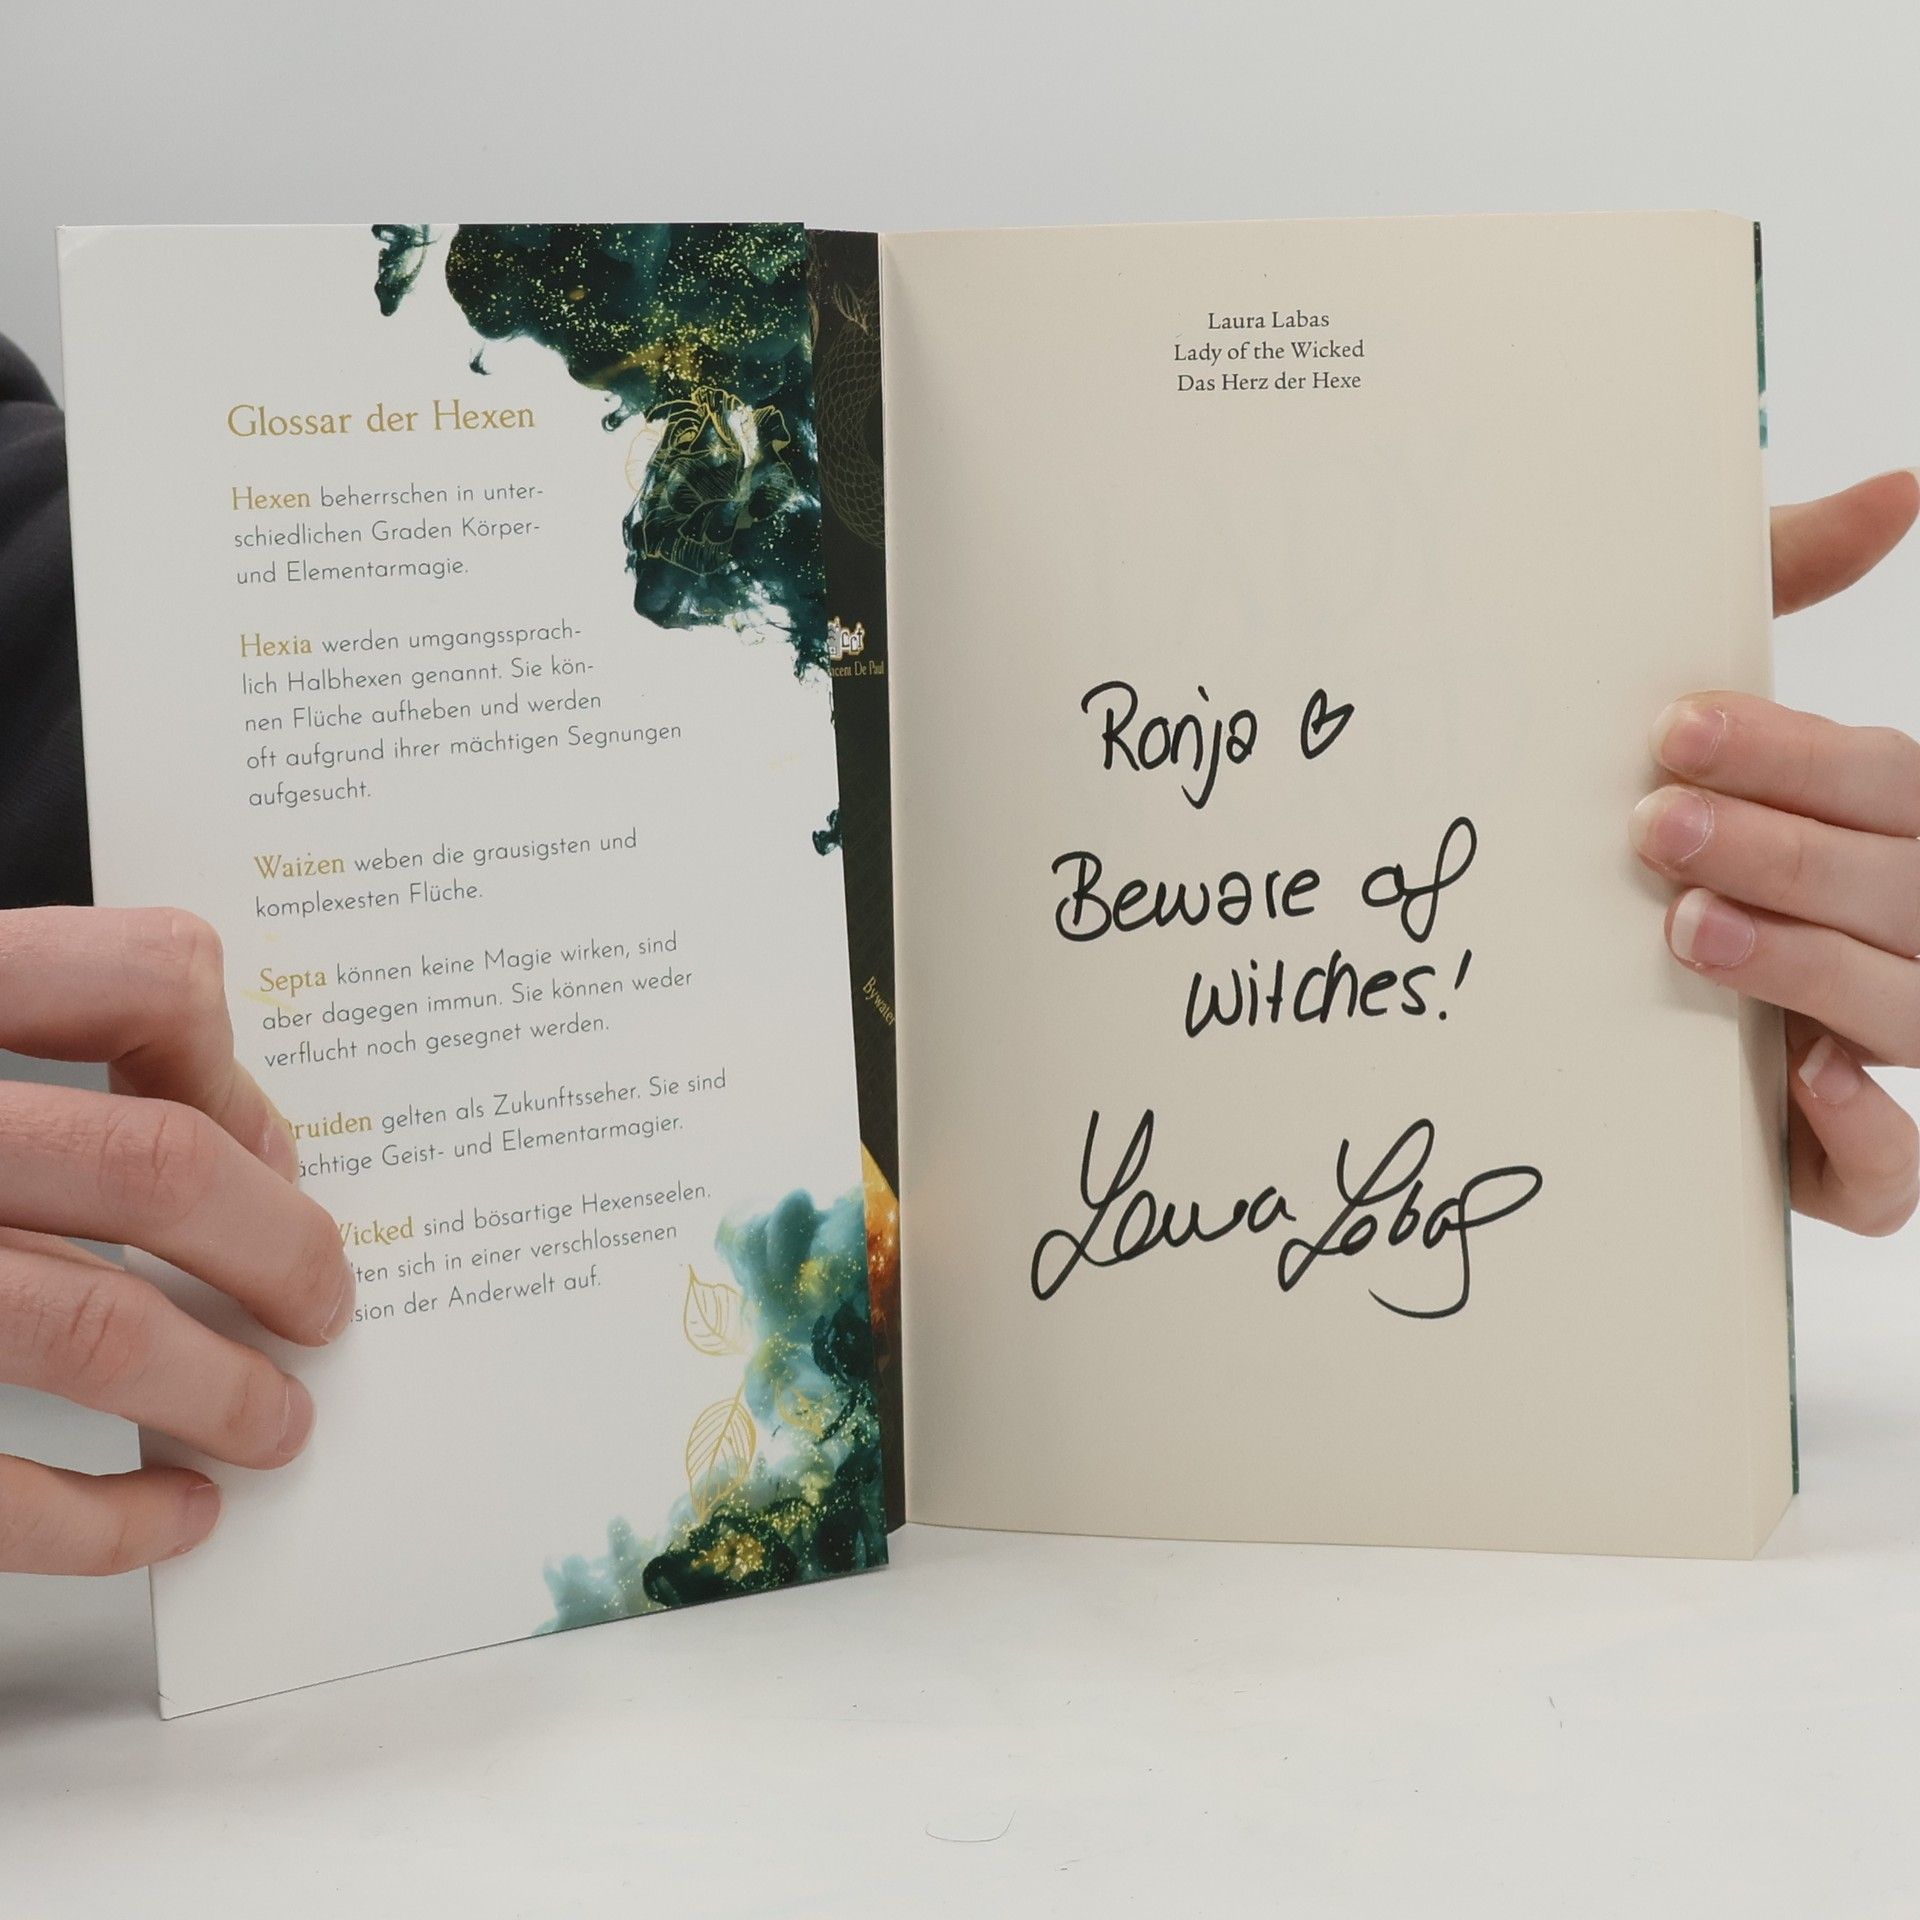 Glossar der Hexen
Hexen beherrschen in unter-
schiedlichen Graden Körper-
und Elementarmagie.
Hexia werden umgangssprach-
lich Halbhexen genannt. Sie kön-
nen Flüche aufheben und werden
oft aufgrund ihrer mächtigen Segnungen
aufgesucht.
Waizen weben die grausigsten und
komplexesten Flüche.
Septa können keine Magie wirken, sind
aber dagegen immun. Sie können weder
verflucht noch gesegnet werden.
Druiden gelten als Zukunftsseher. Sie sind
ächtige Geist- und Elementarmagier.
Wicked sind bösartige Hexenseelen.
lten sich in einer verschlossenen
sion der Anderwelt auf.
De Paul
Bywater
Laura Labas
Lady of the Wicked
Das Herz der Hexe
Ronja
Beware of
witches!
Laura Labas